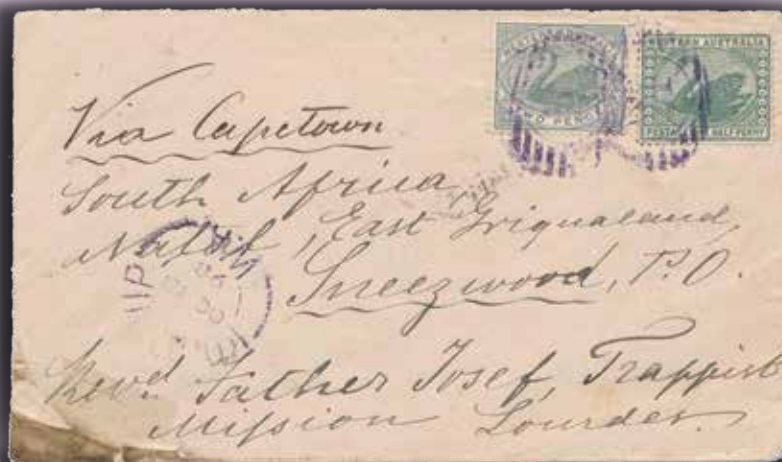 WESTERN AUSTRALIA
POSTAGE HALF PENNY
Via Capetown
South Africa,
Natal, East Griqualand,
Sneezwood, P.O.
Revd. Father Josef, Trappist
Mission Lourdes.